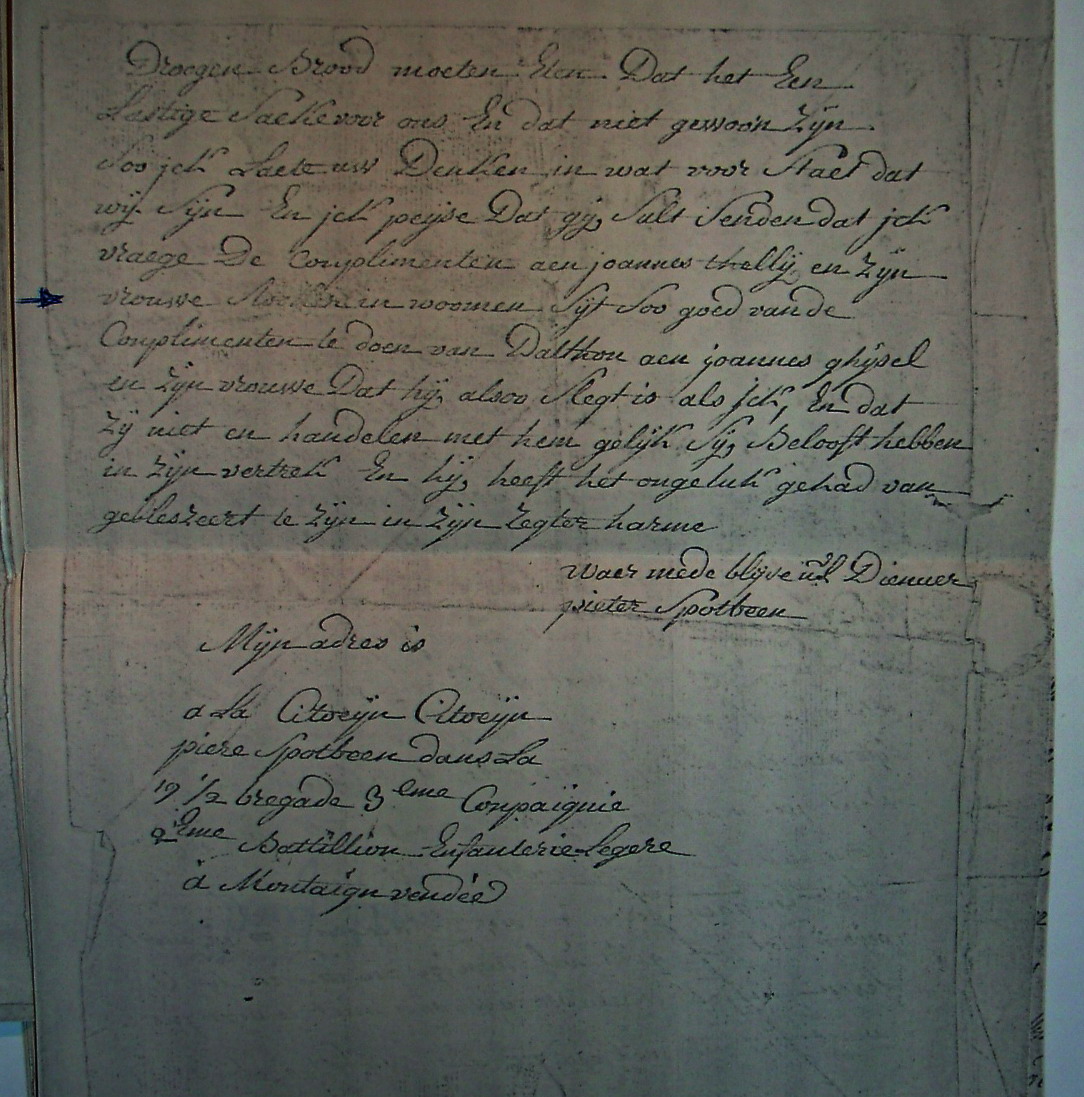 Droegen Brood moeten Eten Dat het Een
Lastige Saeke voor ons En dat niet gewoon Zijn
Soo jck Laete uw Denken in wat voor Staet dat
wij Sijn En jck peijse Dat gij Sult Senden dat jck
vraege De Conplimenten aen joannes thellij en Zijn
vrouwe in woomen Sijt Soo goed van de
Conplimenten te doen van Dalthon aen joannes ghijsel
en Zijn vrouwe Dat hij alsoo Slegt is als jck, En dat
Zij niet en handelen met hem gelijk Sij Belooft hebben
in Zijn vertrek En hij heeft het ongeluk gehad van
gebleszeert te Zijn in Zijn Zegter harme
waer mede blijve Dienaer
pieter Spotbeen
Mijn adres is
a La Citoeijn Citoeijn
piere Spotbeen dans La
19 1/2 bregade 3 eme Conpaignie
2 eme Battillion Enfanterie Legere
á Montaign vendée